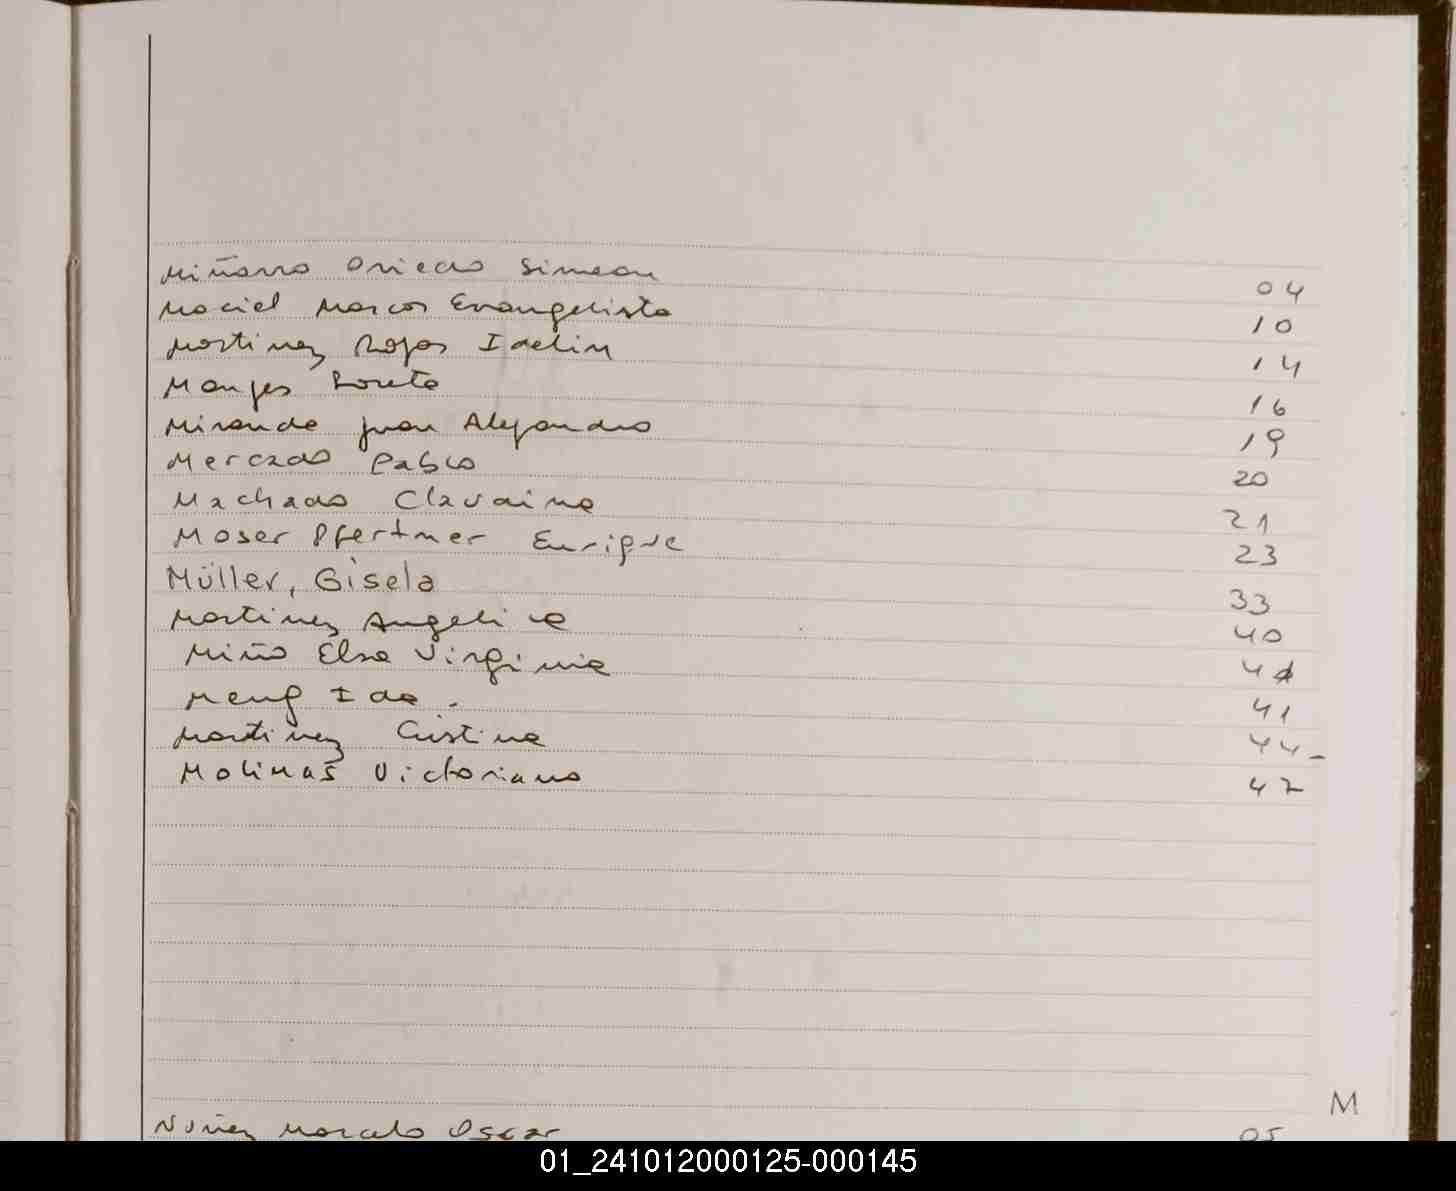 Miñarro Oviedo Simeon 04
Maciel Marcos Evangelista 10
Martinez Rojas Idelin 14
Monges Loreto 16
Miranda Juan Alejandro 19
Mercado Pablo 20
Machado Clavaina 21
Moser Pfertner Enrique 23
Müller, Gisela 33
Martinez Angelica 40
Miño Elsa Virginia 41
Meng Ida. 41
Martinez Cristina 44-
Molinas Victoriano 47
M
Nuñez Marcelo Oscar 05
01_241012000125-000145